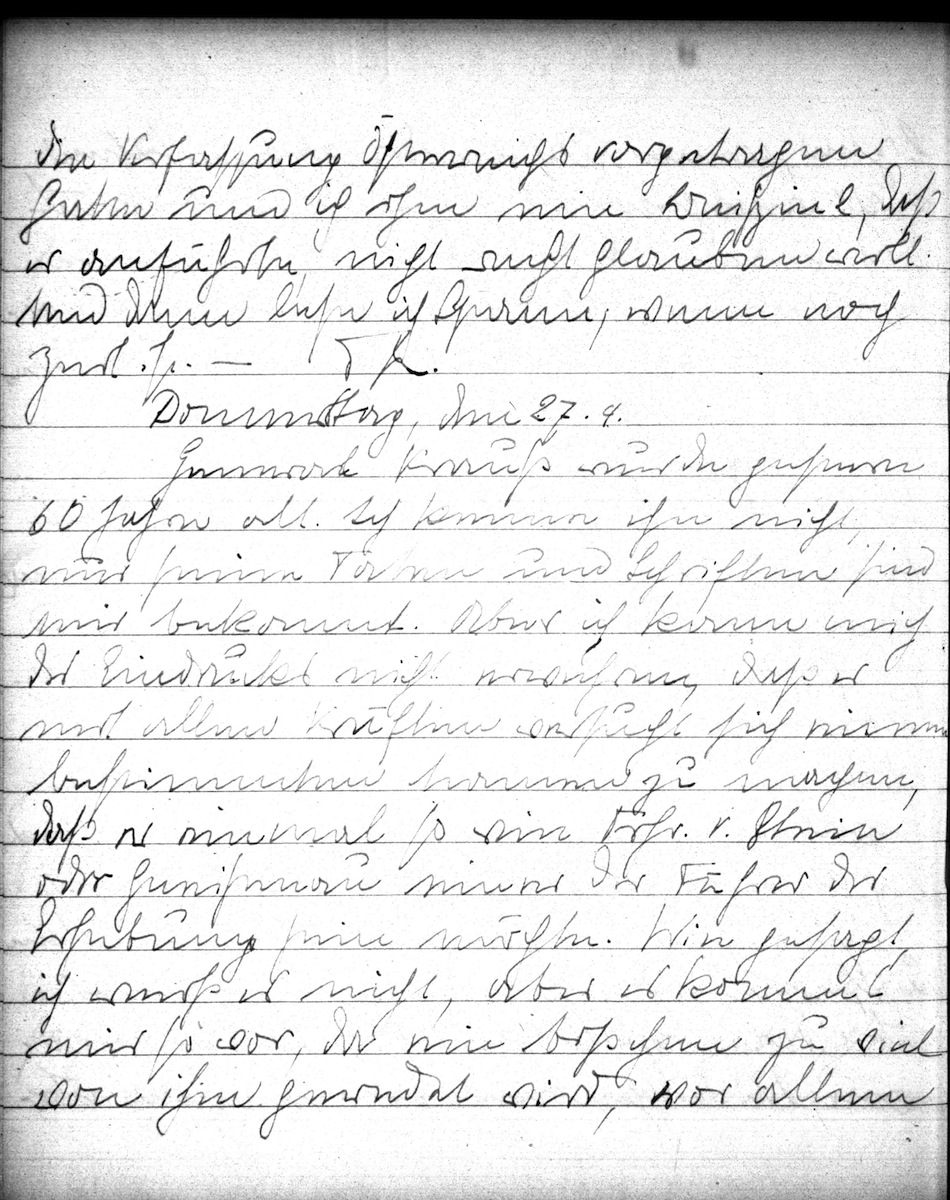 die Verfassung Österreichs vorgetragen
hatte und ich ihm eine Kleinigkeit, daß
er anführte, nicht recht glauben will.
Und dann lese ich Spanne, wenn noch
Zeit ist. —
Donnerstag, den 27. 4.
General Krauß wurde gestern
60 Jahre alt. Ich kenne ihn nicht,
nur seine Taten und Schriften sind
mir bekannt. Aber ich kann mich
des Eindrucks nicht erwehren, daß er
mit allen Kräften versucht sich einen
bestimmten Namen zu machen,
daß er einmal so ein Frhr. v. Stein
oder Gneisenau einer der Führer der
Erhebung sein möchte. Wie gesagt,
ich weiß es nicht, aber es kommt
mir so vor, da ein bißchen zu viel
von ihm geredet wird, vor allem